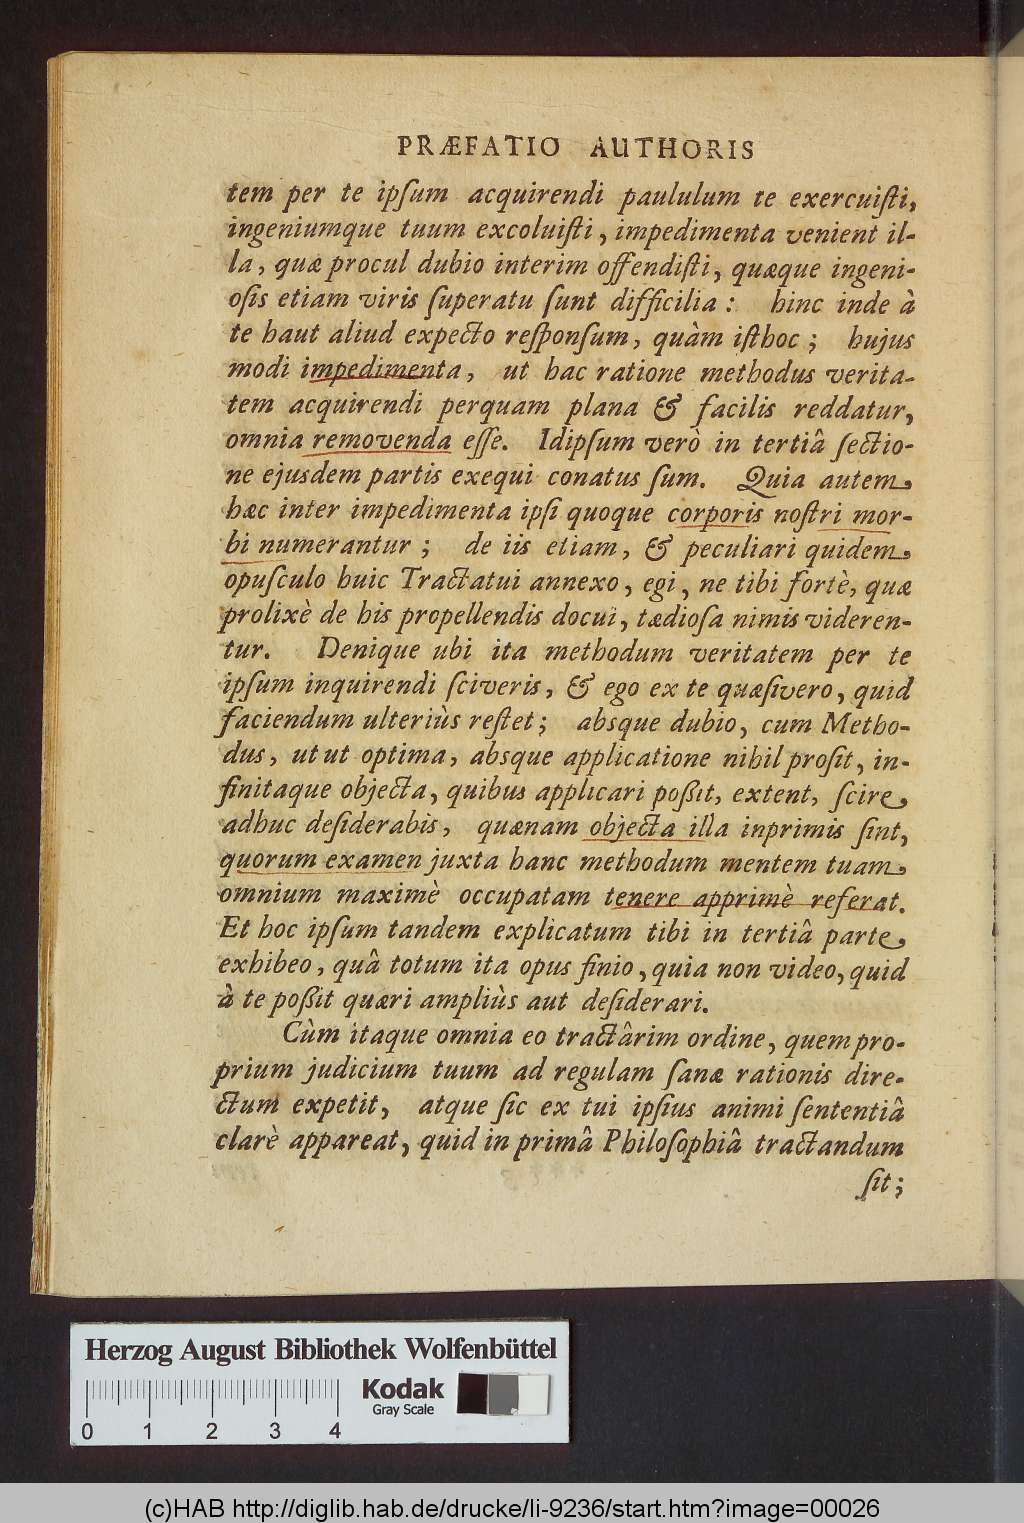 PRÆFATIO AUTHORIS
tem per te ipſum acquirendi paululum te exercuiſti,
ingeniumque tuum excoluiſti, impedimenta venient il-
la, quæ procul dubio interim offendiſti, quæque ingeni-
oſis etiam viris ſuperatu ſunt difficilia: hinc inde à
te haut aliud expecto reſponſum, quàm iſthoc; hujus
modi impedimenta, ut hac ratione methodus verita-
tem acquirendi perquam plana & facilis reddatur,
omnia removenda eſſe. Idipſum verò in tertiâ ſectio-
ne ejusdem partis exequi conatus ſum. Quia autem
hæc inter impedimenta ipſi quoque corporis noſtri mor-
bi numerantur; de iis etiam, & peculiari quidem
opuſculo huic Tractatui annexo, egi, ne tibi fortè, quæ
prolixè de his propellendis docui, tædioſa nimis videren-
tur. Denique ubi ita methodum veritatem per te
ipſum inquirendi ſciveris, & ego ex te quæſivero, quid
faciendum ulteriùs reſtet; absque dubio, cum Metho-
dus, ut ut optima, absque applicatione nihil proſit, in-
finitaque objecta, quibus applicari poßit, extent, ſcire
adhuc deſiderabis, quænam objecta illa inprimis ſint,
quorum examen juxta hanc methodum mentem tuam
omnium maximè occupatam tenere apprimè referat.
Et hoc ipſum tandem explicatum tibi in tertiâ parte
exhibeo, quâ totum ita opus finio, quia non video, quid
à te poßit quæri ampliùs aut deſiderari.
Cùm itaque omnia eo tractârim ordine, quem pro-
prium judicium tuum ad regulam ſanæ rationis dire-
ctum expetit, atque ſic ex tui ipſius animi ſententiâ
clarè appareat, quid in primâ Philoſophiâ tractandum
ſit;
Herzog August Bibliothek Wolfenbüttel
Kodak
Gray Scale
0 1 2 3 4
(c)HAB http://diglib.hab.de/drucke/li-9236/start.htm?image=00026